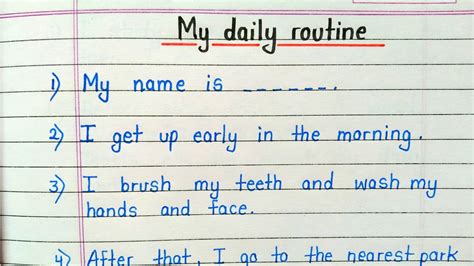 My daily routine
1) My name is ______.
2) I get up early in the morning.
3) I brush my teeth and wash my
hands and face.
4) After that, I go to the nearest park